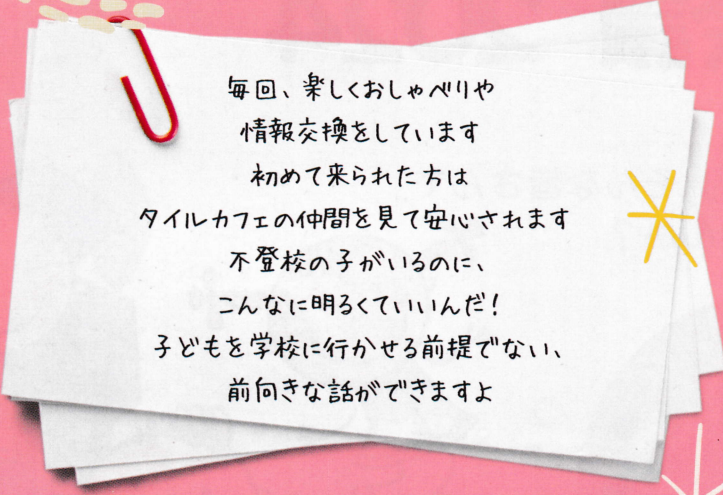 毎回、楽しくおしゃべりや
情報交換をしています
初めて来られた方は
タイルカフェの仲間を見て安心されます
不登校の子がいるのに、
こんなに明るくていいんだ！
子どもを学校に行かせる前提でない、
前向きな話ができますよ